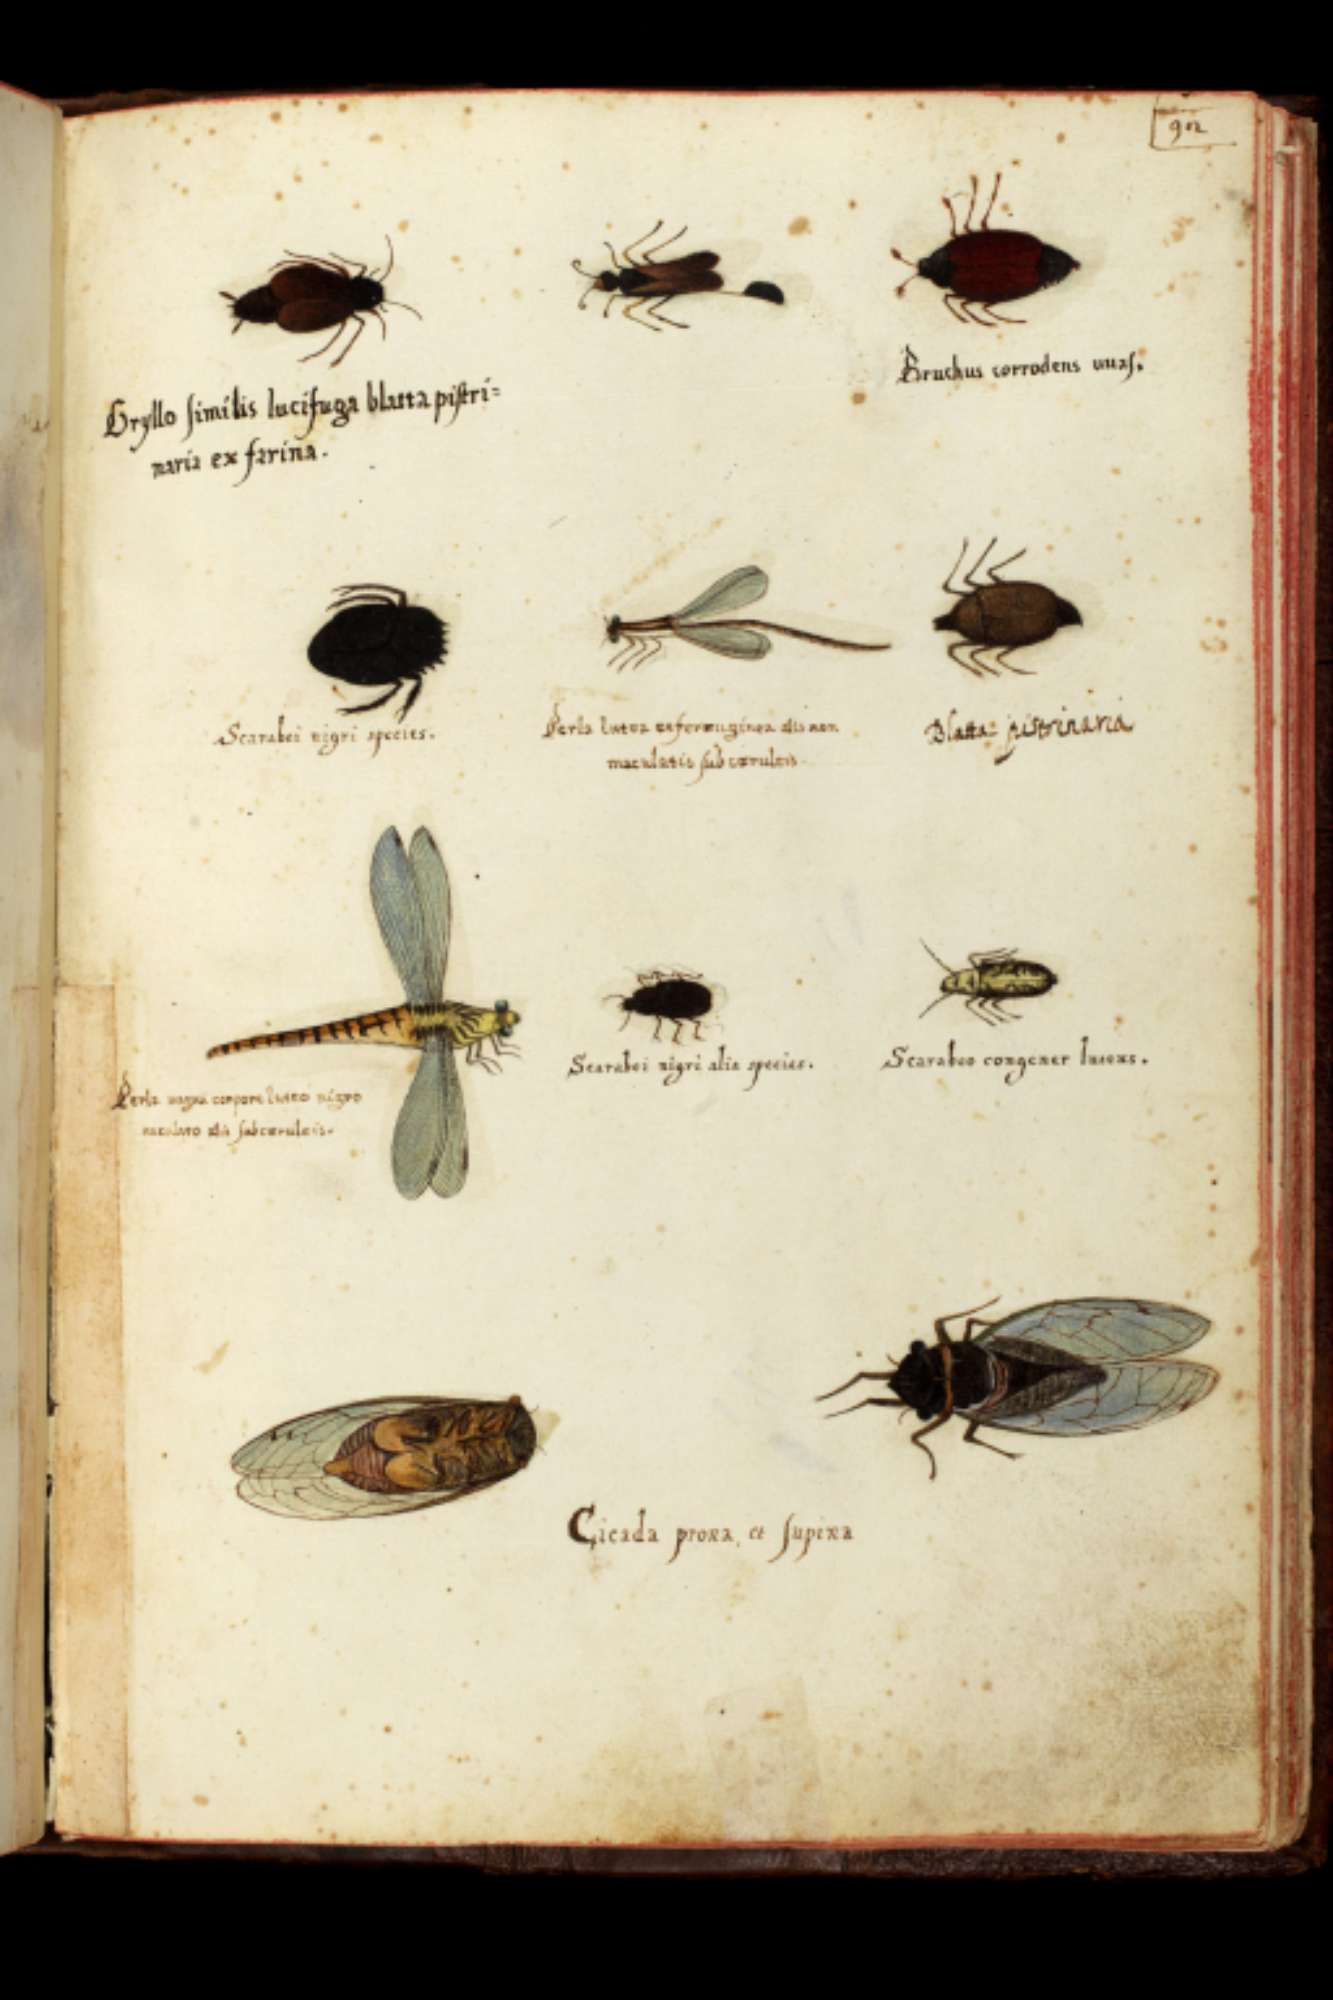 92
Gryllo similis lucifuga blatta pistri=
naria ex farina.
Bruchus corrodens uuas.
Scarabei nigri species.
Perla lutea ex ferruginea alis non
maculatis subcœruleis
Blatta pistrinaria
Perla magna corpore luteo nigro
maculato alis subcœruleis.
Scarabei nigri alia species.
Scarabeo congener
Cicada prona, et supina